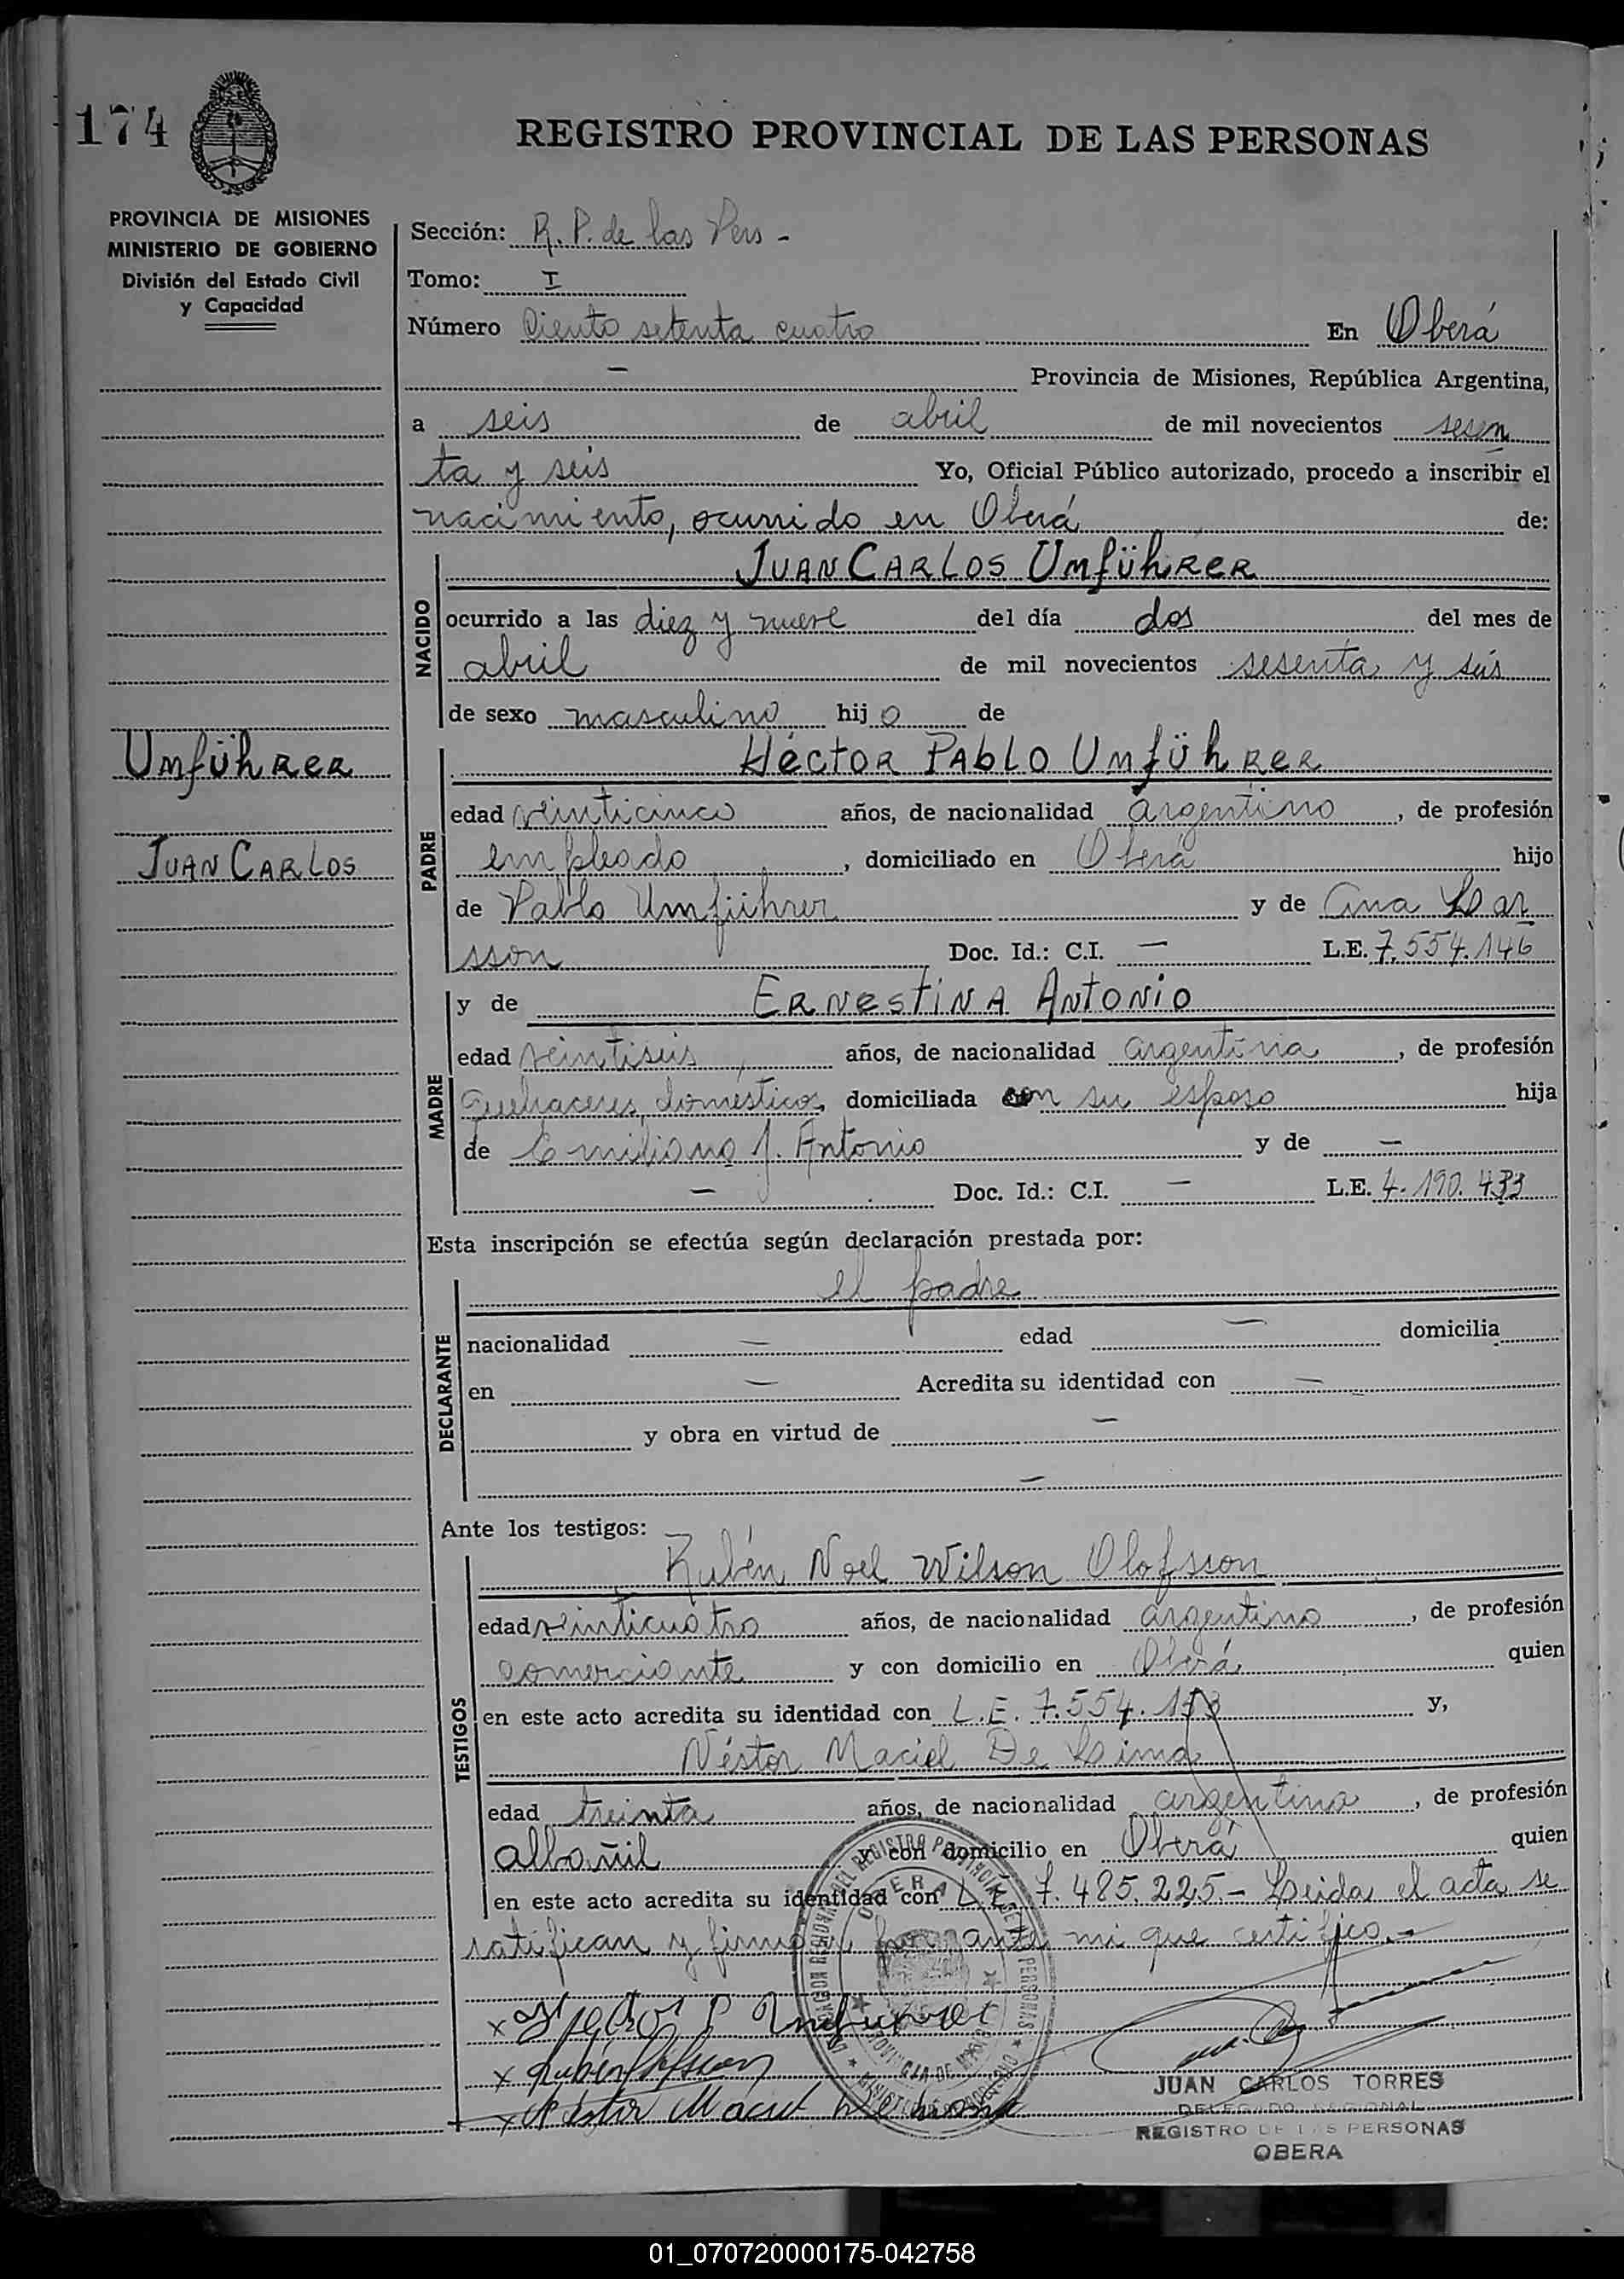 174
REGISTRO PROVINCIAL DE LAS PERSONAS
PROVINCIA DE MISIONES
MINISTERIO DE GOBIERNO
División del Estado Civil
y Capacidad
Umführer
Juan Carlos
Sección: R. P. de las Pers -
Tomo: I
Número Ciento setenta cuatro En Oberá
— Provincia de Misiones, República Argentina,
a seis de abril de mil novecientos sesen
ta y seis Yo, Oficial Público autorizado, procedo a inscribir el
nacimiento, ocurrido en Oberá de:
NACIDO
Juan Carlos Umführer
ocurrido a las diez y nueve del día dos del mes de
abril de mil novecientos sesenta y seis
de sexo masculino hijo de
PADRE
Héctor Pablo Umführer
edad veinticinco años, de nacionalidad argentino, de profesión
empleado, domiciliado en Oberá hijo
de Pablo Umführer y de Ana Lar
sson Doc. Id.: C.I. — L.E. 7.554.146
MADRE
y de Ernestina Antonio
edad veintiseis, años, de nacionalidad argentina, de profesión
Quehaceres domésticos, domiciliada con su esposo hija
de Emiliano J. Antonio y de —
— Doc. Id.: C.I. — L.E. 4.190.433
Esta inscripción se efectúa según declaración prestada por:
DECLARANTE
el padre
nacionalidad — edad — domicilia
en — Acredita su identidad con —
y obra en virtud de —
—
Ante los testigos:
TESTIGOS
Rubén Noel Wilson Olofsson
edad veinticuatro años, de nacionalidad argentino, de profesión
comerciante y con domicilio en Oberá quien
en este acto acredita su identidad con L.E. 7.554.173 y,
Néstor Maciel De Lima
edad treinta años, de nacionalidad argentina, de profesión
albañil y con domicilio en Oberá quien
en este acto acredita su identidad con L.E. 7.485.225 - Leida el acta se
ratifican y firman por ante mi que certifico.-
x Hector P Umfuhrer
x Rubén Olofsson
x Néstor Maciel De Lima
JUAN CARLOS TORRES
DELEGADO REGIONAL
REGISTRO DE LAS PERSONAS
OBERA
01_070720000175-042758